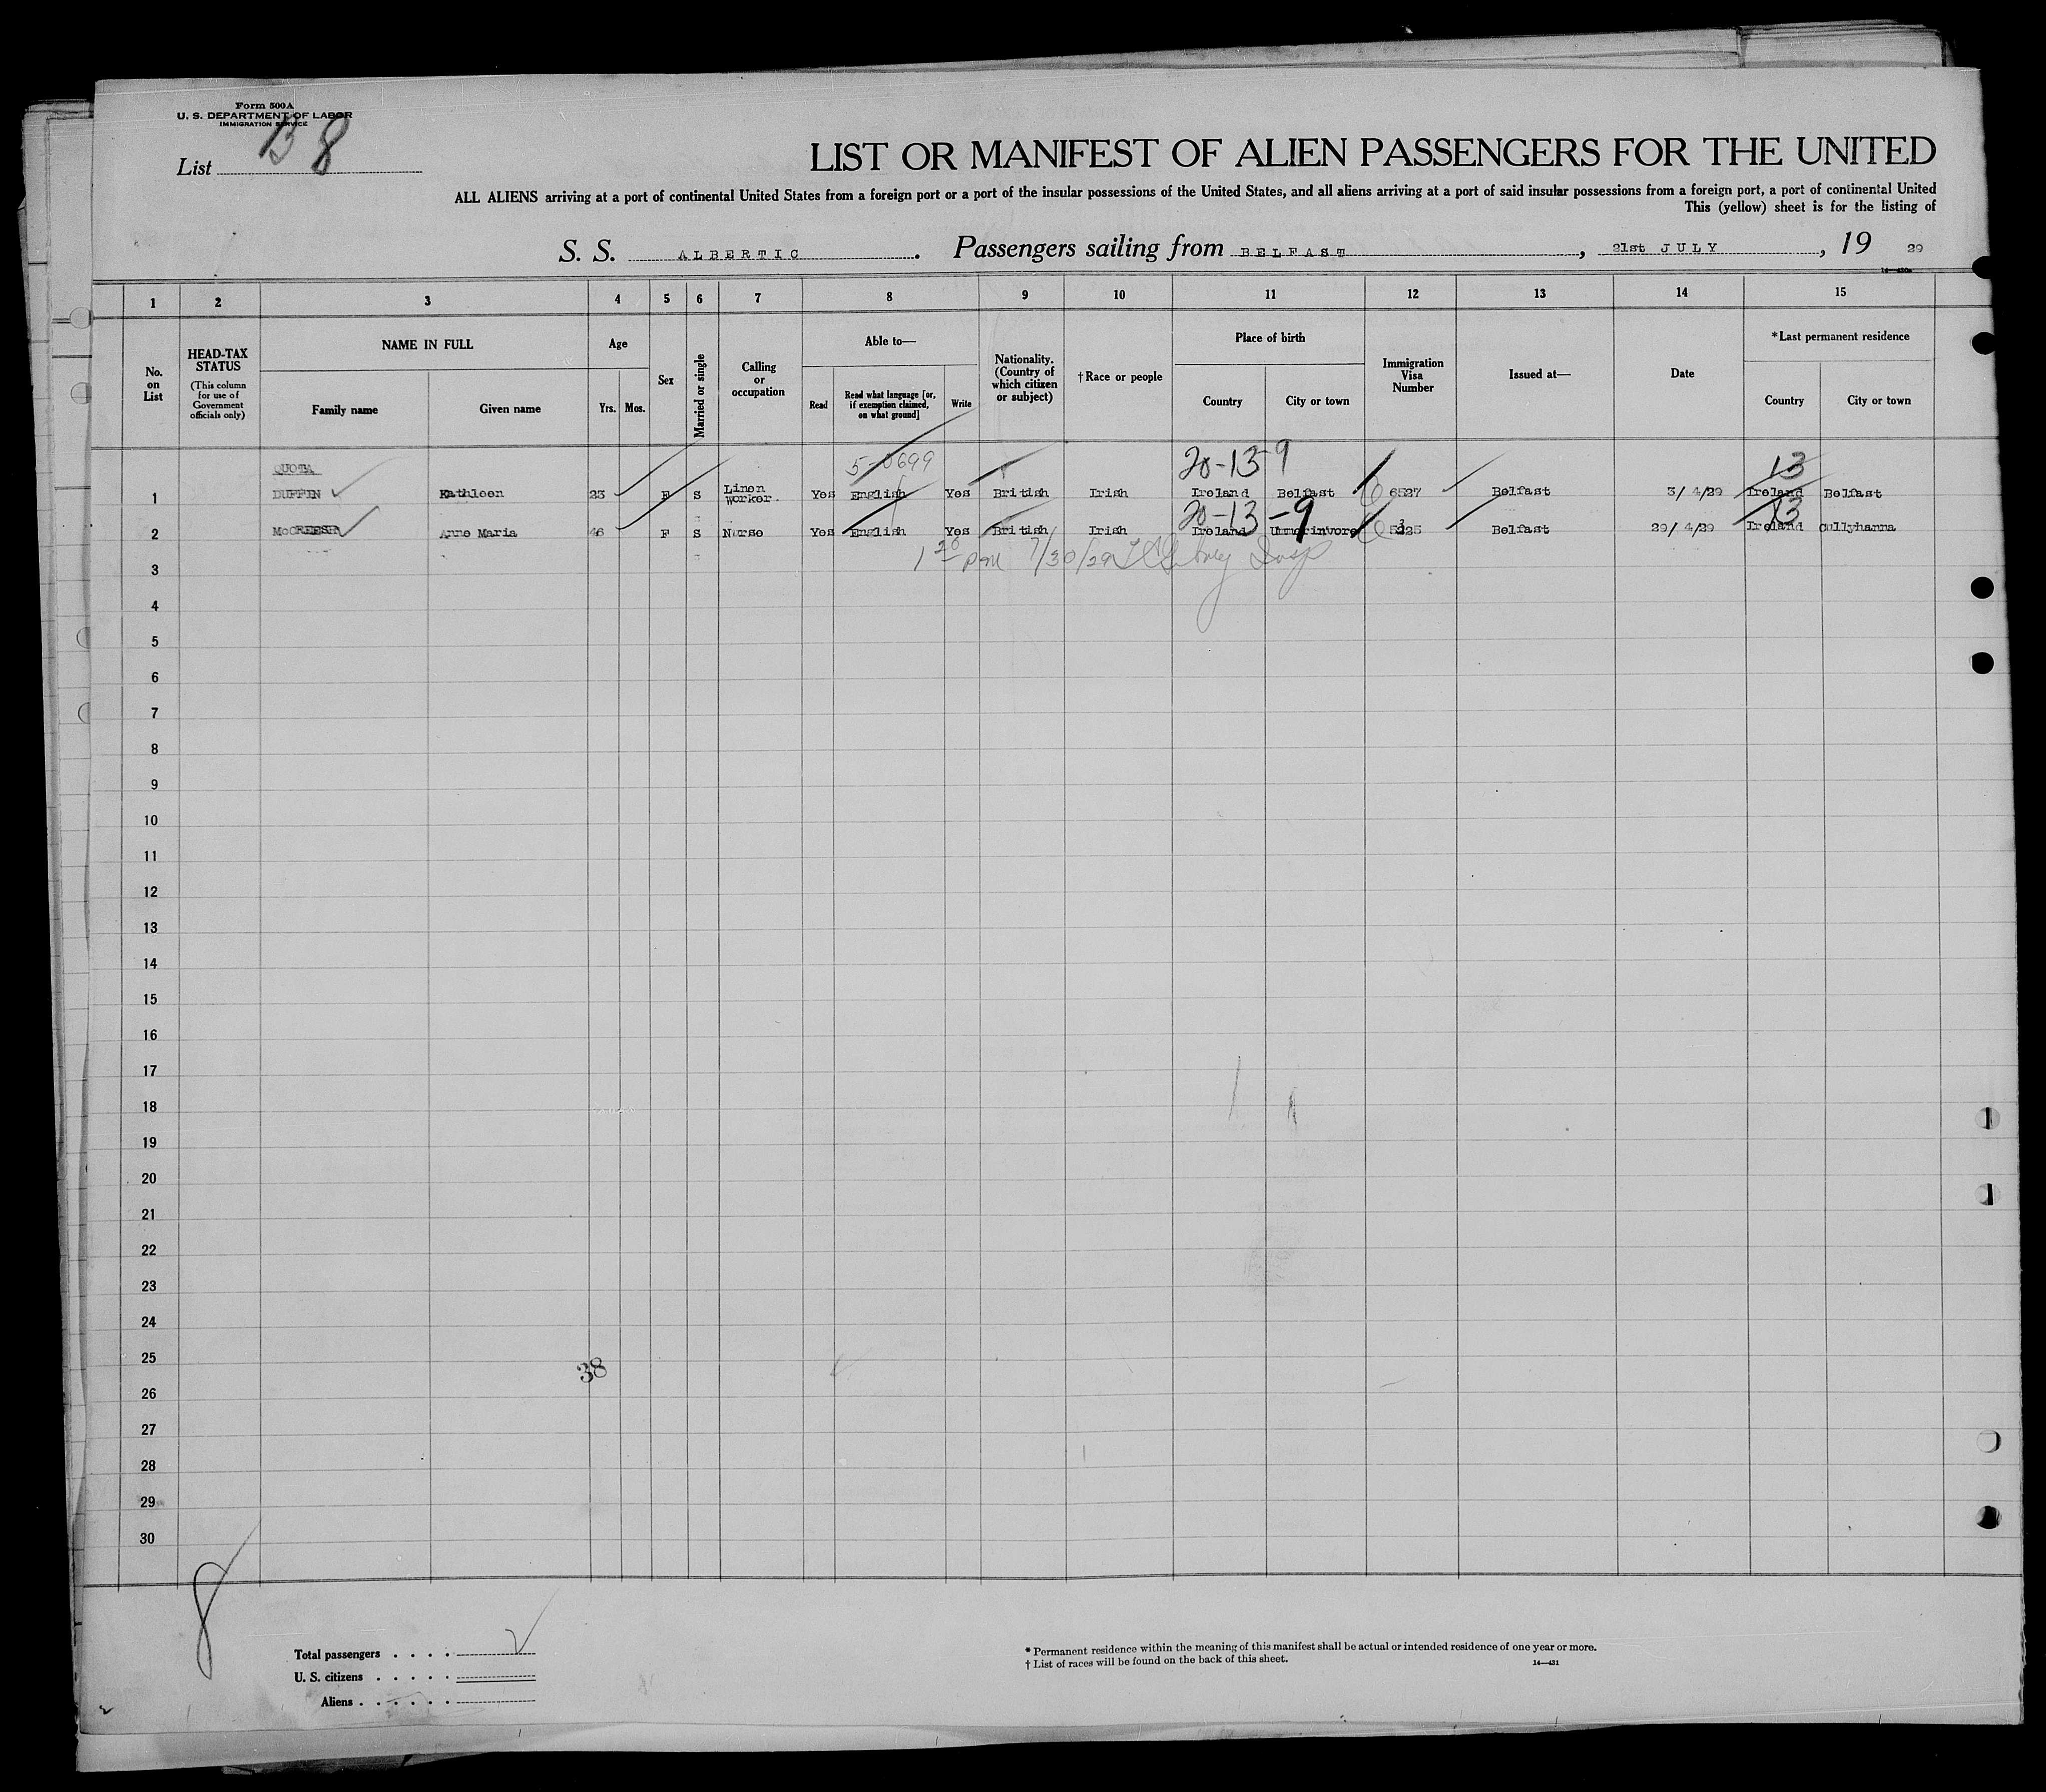 Form 500A
U. S. DEPARTMENT OF LABOR
IMMIGRATION SERVICE
List B 8
LIST OR MANIFEST OF ALIEN PASSENGERS FOR THE UNITED
ALL ALIENS arriving at a port of continental United States from a foreign port or a port of the insular possessions of the United States, and all aliens arriving at a port of said insular possessions from a foreign port, a port of continental United
This (yellow) sheet is for the listing of
S. S. ALBERTIC. Passengers sailing from BELFAST, 21st JULY, 19 29
1 2 3 4 5 6 7 8 9 10 11 12 13 14 15
No. on List
HEAD-TAX STATUS
(This column for use of Government officials only)
NAME IN FULL
Family name
Given name
Age
Yrs.
Mos.
Sex
Married or single
Calling or occupation
Able to—
Read
Read what language [or, if exemption claimed, on what ground]
Write
Nationality. (Country of which citizen or subject)
†Race or people
Place of birth
Country
City or town
Immigration Visa Number
Issued at—
Date
*Last permanent residence
Country
City or town
QUOTA 5-0699 20-13-9 13
1 DUFFIN Kathleen 23 F S Linen worker. Yes English Yes British Irish Ireland Belfast 6527 Belfast 3/4/29 Ireland Belfast
20-13-9 13
2 McCREESH Anne Maria 46 F S Nurse Yes English Yes British Irish Ireland Belfast 29/4/29 Ireland Cullyhanna
7/30/29 Insp
3
4
5
6
7
8
9
10
11
12
13
14
15
16
17
18
19
20
21
22
23
24
25
38
26
27
28
29
30
8
Total passengers . . . . 2
U. S. citizens . . . . .
Aliens . . . . . .
* Permanent residence within the meaning of this manifest shall be actual or intended residence of one year or more.
† List of races will be found on the back of this sheet.
14—431